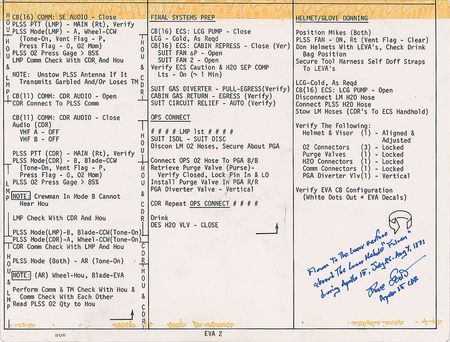 CB(16) COMM: SE AUDIO - Close
PLSS PTT (LMP) - MAIN (Rt), Verify
PLSS Mode(LMP) - A, Wheel-CCW
(Tone-On, Vent Flag - P,
Press Flag - O, O2 Mom)
PLSS O2 Press Gage > 85%
LMP Comm Check With CDR And Hou
NOTE: Unstow PLSS Antenna If It
Transmits Garbled And/Or Loses TM
CB(11) COMM: CDR AUDIO - Open
CDR Connect To PLSS Comm
CB(11) COMM: CDR AUDIO - Close
AUDIO (CDR)
VHF A - Off
VHF B - Off
PLSS PTT (CDR) - MAIN (Rt), Verify
PLSS Mode(CDR) - B, Blade-CCW
(Tone-On, Vent Flag - P,
Press Flag - O, O2 Mom)
PLSS O2 Press Gage > 85%
NOTE: Crewman In Mode B Cannot
Hear Hou
LMP Comm Check With CDR And Hou
PLSS Mode(LMP)-B, Blade-CW(Tone-On)
PLSS Mode(CDR)-A, Wheel-CCW(Tone-On)
CDR Comm Check With LMP And Hou
PLSS Mode (Both) - AR (Tone-On)
NOTE: (AR) Wheel-Hou, Blade-EVA
Perform Comm & TM Check With Hou &
Comm Check With Each Other
Read PLSS O2 Qty to Hou
FINAL SYSTEMS PREP
CB(16) ECS: LCG PUMP - Close
LCG - Cold, As Reqd
CB(16) ECS: CABIN REPRESS - Close (Ver)
SUIT FAN ΔP - Open
SUIT FAN 2 - Open
Verify ECS Caution & H2O SEP COMP
Lts - On (~ 1 Min)
SUIT GAS DIVERTER - PULL-EGRESS(Verify)
CABIN GAS RETURN - EGRESS (Verify)
SUIT CIRCUIT RELIEF - AUTO (Verify)
OPS CONNECT
# # # # LMP 1st # # # #
SUIT ISOL - SUIT DISC
Discon LM O2 Hoses, Secure About PGA
Connect OPS O2 Hose To PGA B/B
Retrieve Purge Valve (Purge)-
Verify Closed, Lock Pin In & LO
Install Purge Valve In PGA R/R
PGA Diverter Valve - Vertical
CDR Repeat OPS CONNECT # # # #
Drink
DES H2O VLV - CLOSE
EVA 2
HELMET/GLOVE DONNING
Position Mikes (Both)
PLSS FAN - ON, Rt (Vent Flag - Clear)
Don Helmets With LEVA's, Check Drink
Bag Position
Secure Tool Harness Self Doff Straps
To LEVA's
LCG-Cold, As Reqd
CB(16) ECS: LCG PUMP - Open
Disconnect LM H2O Hose
Connect PLSS H2O Hose
Stow LM Hoses (CDR's To ECS Handhold)
Verify The Following:
Helmet & Visor (1) - Aligned &
Adjusted
O2 Connectors (3) - Locked
Purge Valves (1) - Locked
H2O Connector (1) - Locked
Comm Connectors (1) - Locked
PGA Diverter Vlv(1) - Vertical
Verify EVA CB Configuration
(White Dots Out + EVA Decals)
Flown to the lunar surface
aboard the Lunar Module "Falcon"
during Apollo 15, July 26-Aug 7, 1971
Dave Scott
Apollo 15 CDR